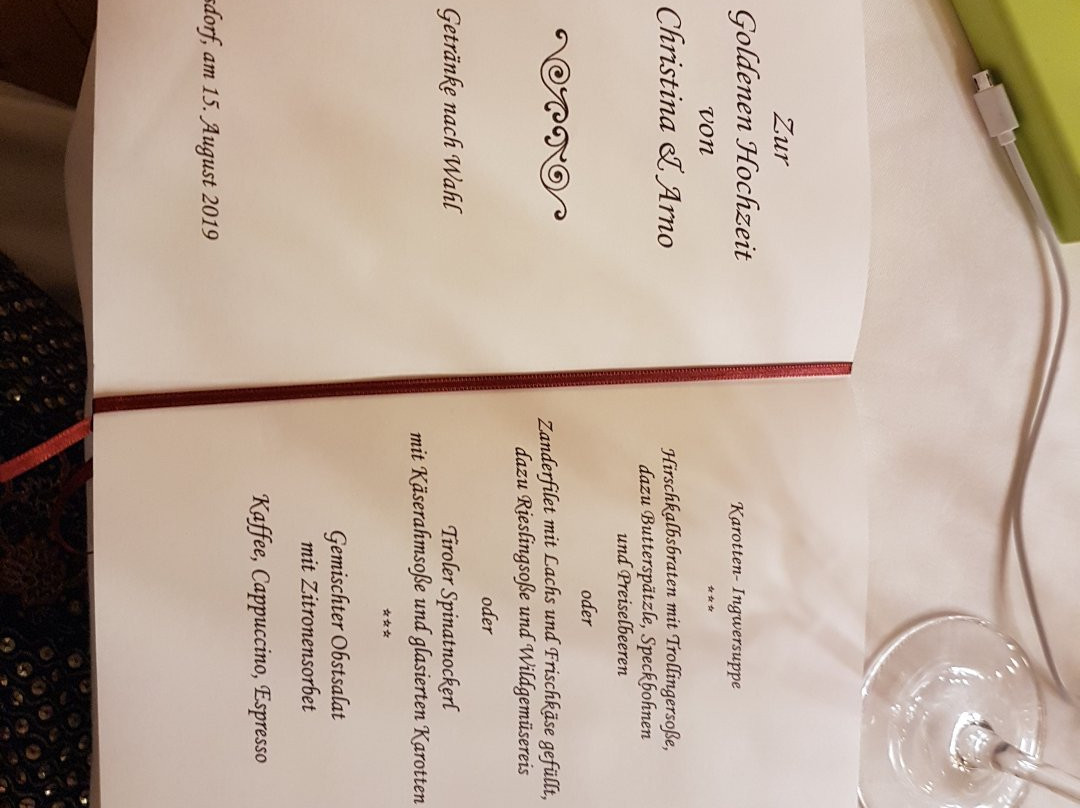 Zur
Goldenen Hochzeit
von
Christina & Arno
Getränke nach Wahl
am 15. August 2019
Karotten- Ingwersuppe
***
Hirschkalbsbraten mit Trollingersoße,
dazu Butterspätzle, Speckbohnen
und Preiselbeeren
oder
Zanderfilet mit Lachs und Frischkäse gefüllt,
dazu Rieslingsoße und Wildgemüsereis
oder
Tiroler Spinatnockerl
mit Käserahmsoße und glasierten Karotten
***
Gemischter Obstsalat
mit Zitronensorbet
Kaffee, Cappuccino, Espresso